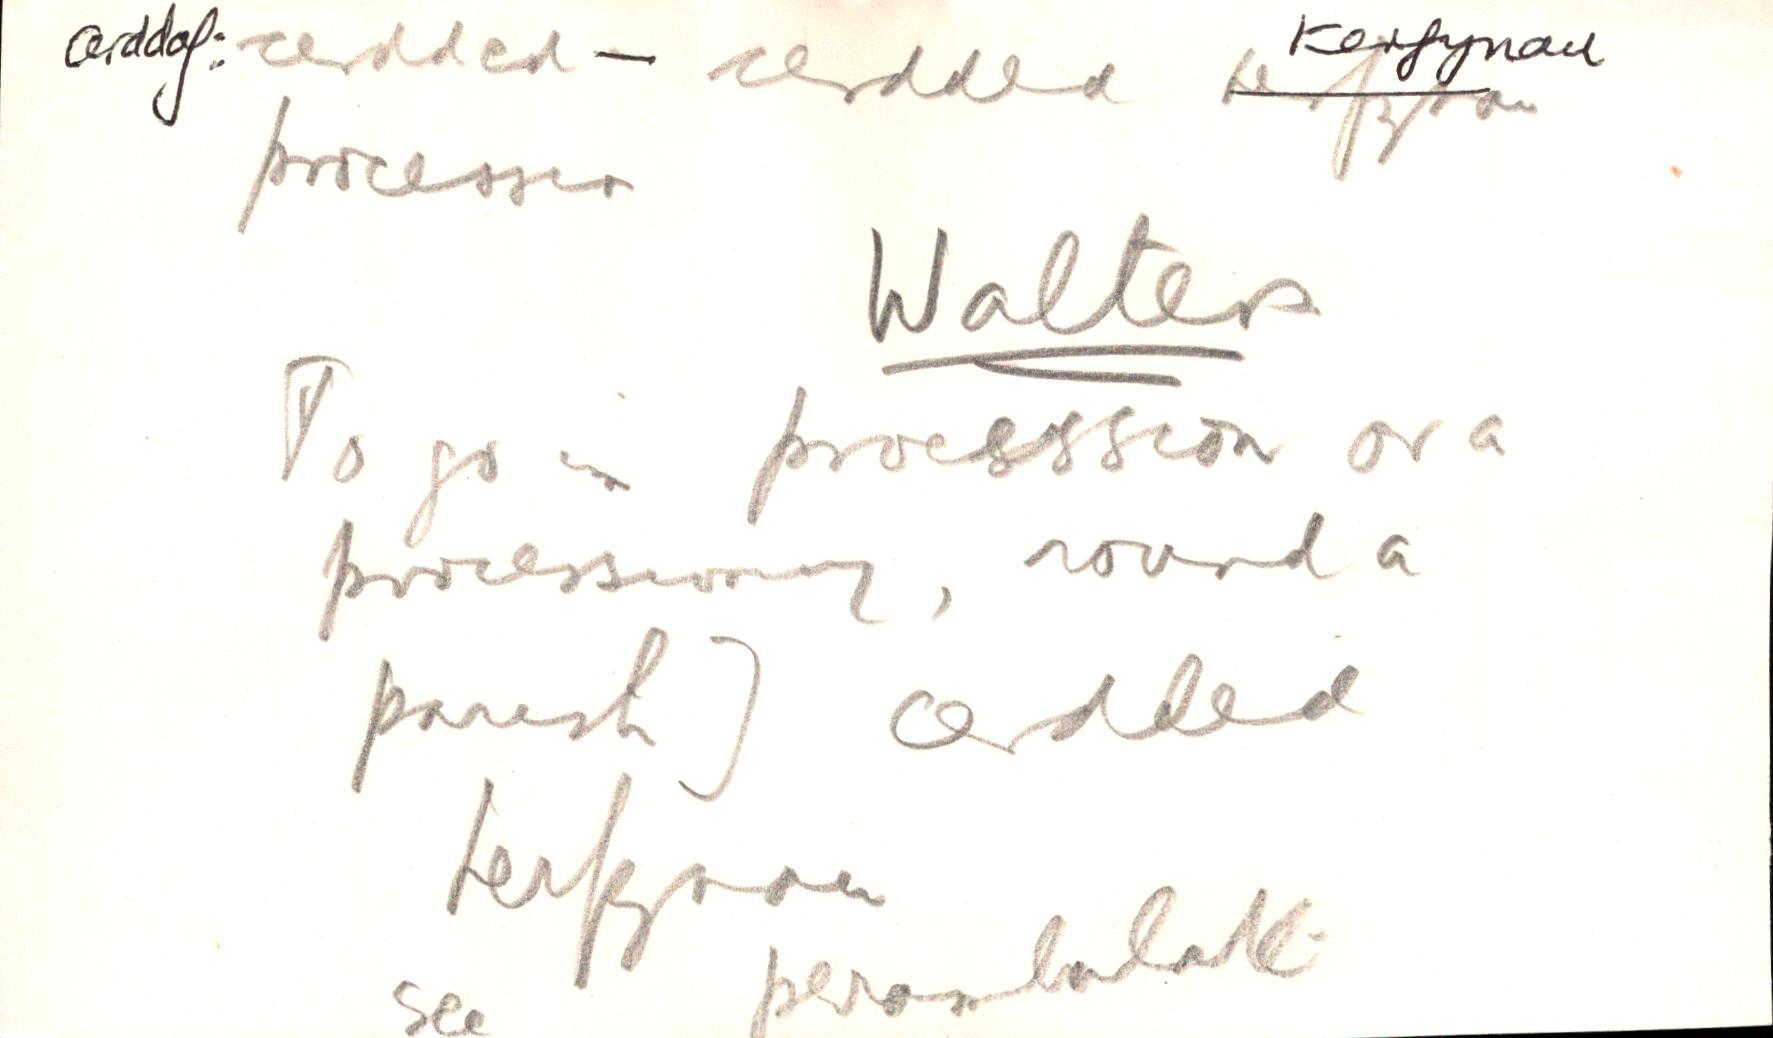 cerddaf: cerdded — cerdded terfynau terfynau
procession
Walters
To go in procession or a
processioning, round a
parish] cerdded
terfynau
see perambulate